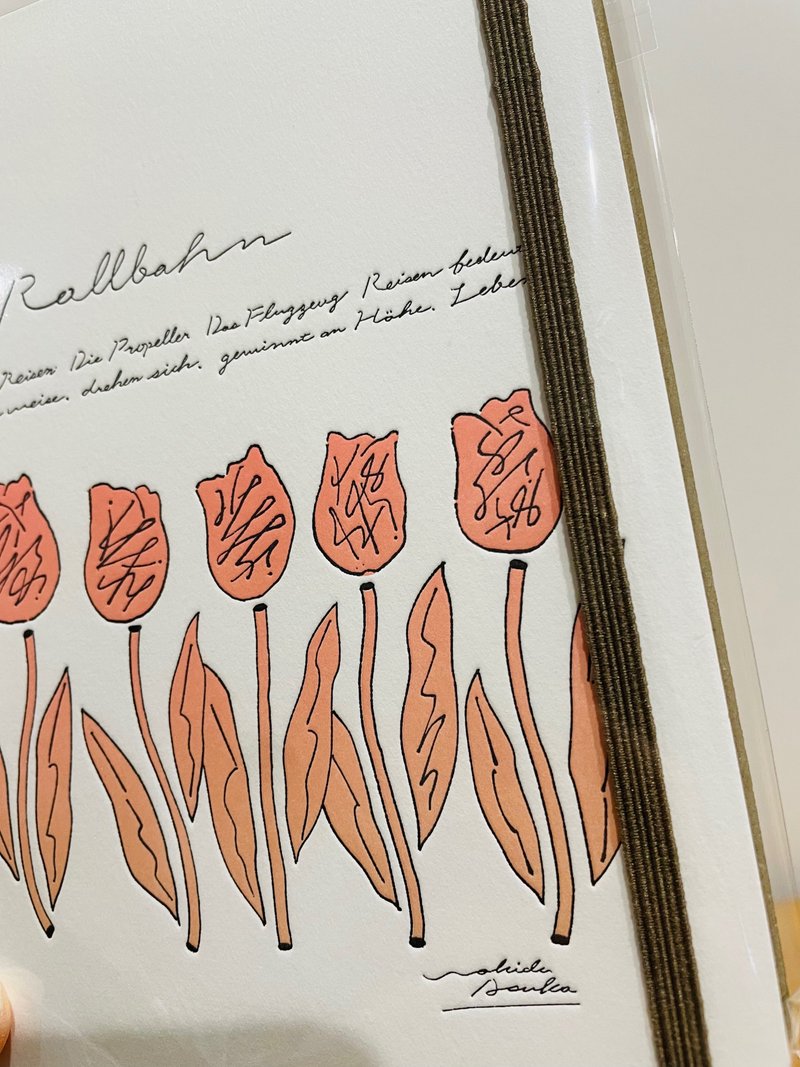 Rollbahn
Reisen Die Propeller Das Flugzeug Reisen bedeut
weise. drehen sich. gewinnt an Höhe. Leben
Asuka